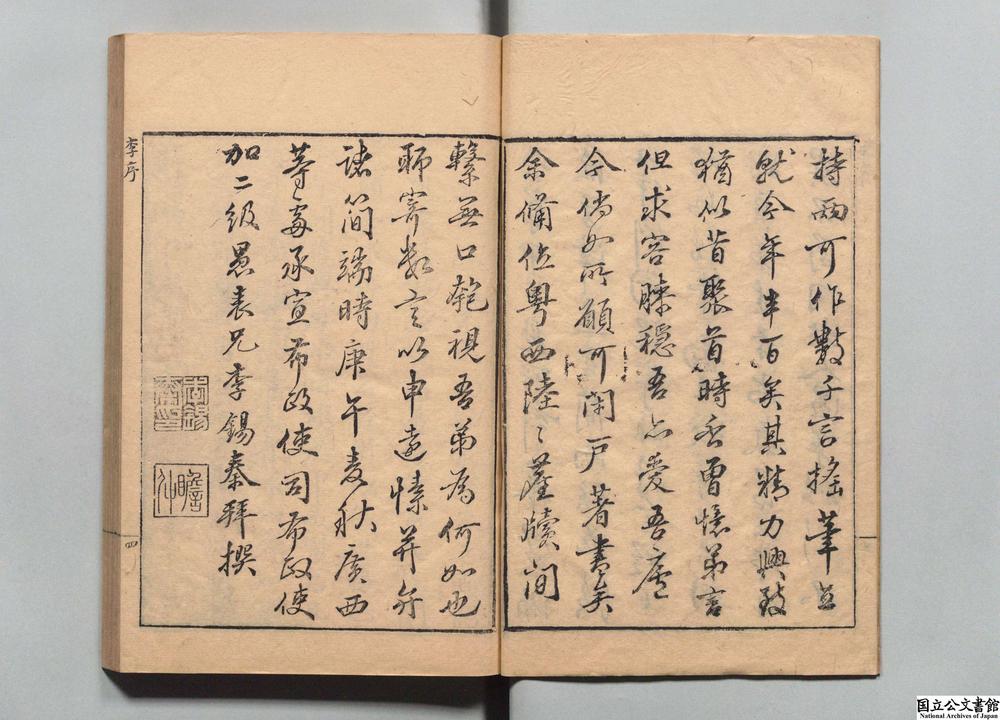 持兩可作數子言搖筆立
就今年半百矣其精力興致
猶似昔聚首時否曾憶弟言
但求容膝穩吾亦愛吾廬
今倘如所願可閑戶著書矣
余備位粤西陸〻簿牘間
繫無口匏視吾弟為何如也
聊寄數言以申遠愫并弁
諸簡端時庚午麦秋廣西
等處承宣布政使司布政使
加二級愚表兄李錫秦拜撰
李序
四
国立公文書館
National Archives of Japan